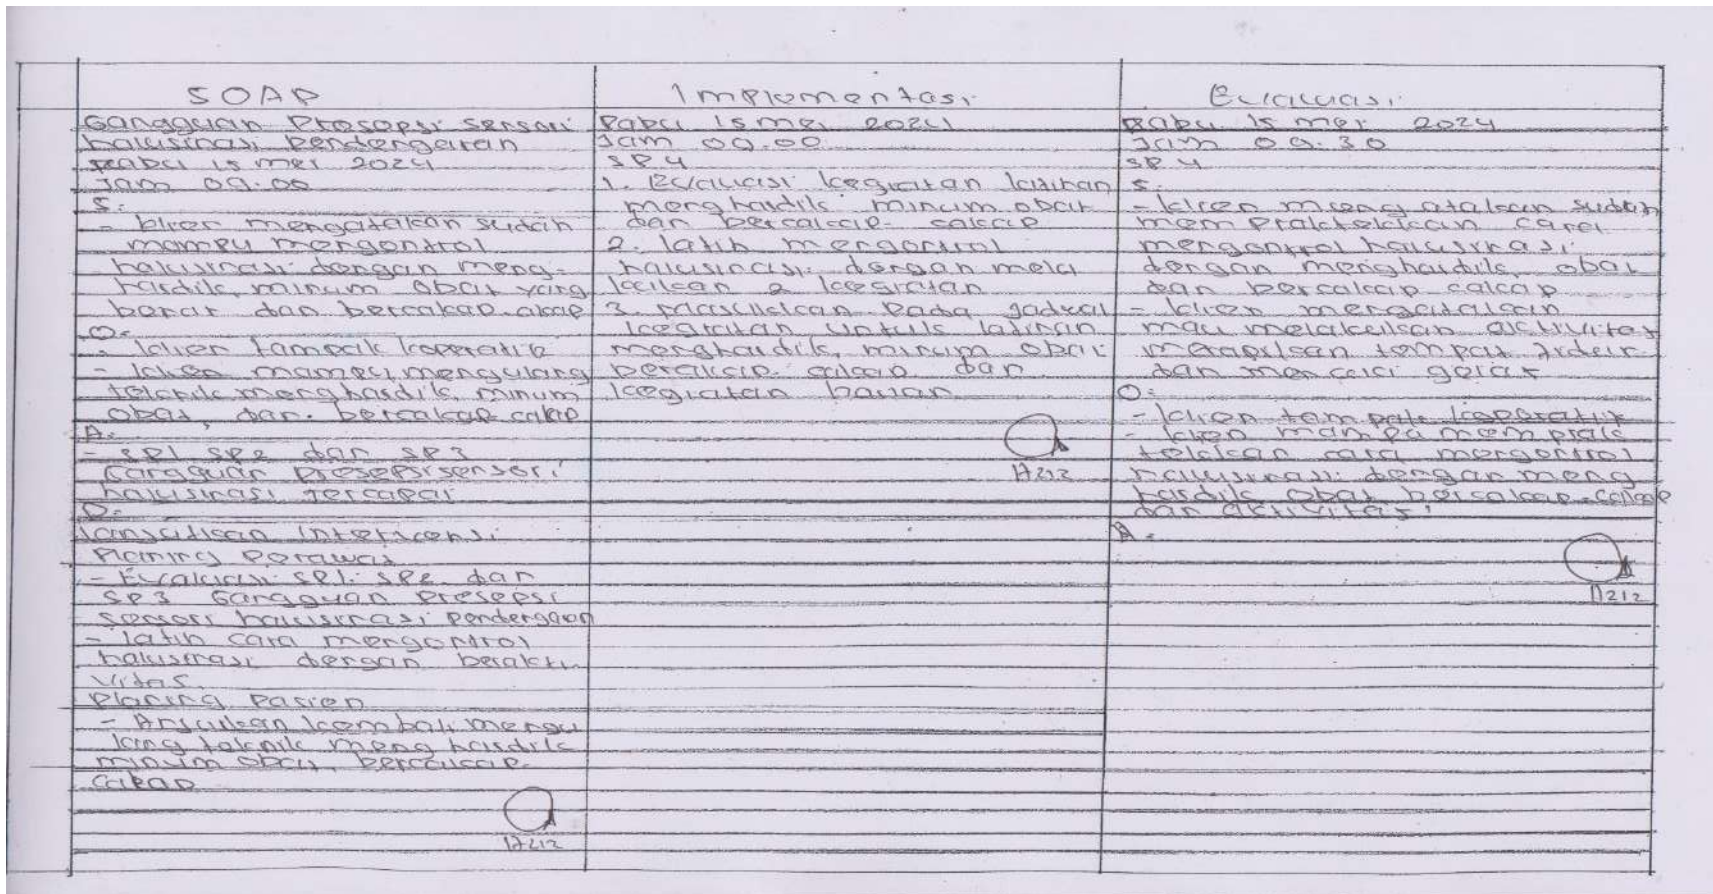 SOAP
Gangguan Presepsi sensori
halusinasi pendengaran
Rabu 15 mei 2024
Jam 09.00
S:
- klien mengatakan sudah
mampu mengontrol
halusinasi dengan meng-
hardik, minum obat yang
benar dan bercakap-cakap
O:
- klien tampak koperatif
- klien mampu mengulang
teknik menghardik, minum
obat, dan bercakap cakap
A:
- SP1 SP2 dan SP3
Gangguan Presepsi sensori
halusinasi tercapai
P:
lanjutkan intervensi
Planing Perawat
- Evaluasi SP1. SP2 dan
SP3 Gangguan Presepsi
sensori halusinasi pendengaran
- latih cara mengontrol
halusinasi dengan berakti
vitas
Planing Pasien
- Anjurkan kembali mengu
lang teknik meng hardik
minum obat, bercakap-
cakap
Implementasi
Rabu 15 mei 2024
Jam 09.00
SP 4
1. Evaluasi kegiatan latihan
menghardik minum obat
dan bercakap-cakap
2. latih mengontrol
halusinasi dengan mela
kukan 2 kegiatan
3. Masukkan Pada jadwal
kegiatan untuk latihan
menghardik, minum obat
cakap dan
kegiatan harian
Evaluasi
Rabu 15 mei 2024
Jam 09.30
SP 4
S:
- klien mengatakan sudah
mem praktekkan cara
mengontrol halusinasi
dengan menghardik, obat
dan bercakap cakap
- klien mengatakan
mau melakukan aktivitas
merapikan tempat tidur
dan mencuci gelas
O:
- klien tampak koperatif
- klien mampu mem prak
tekkan cara mengontrol
halusinasi dengan meng
hardik obat bercakap-cakap
dan aktivitas
A: